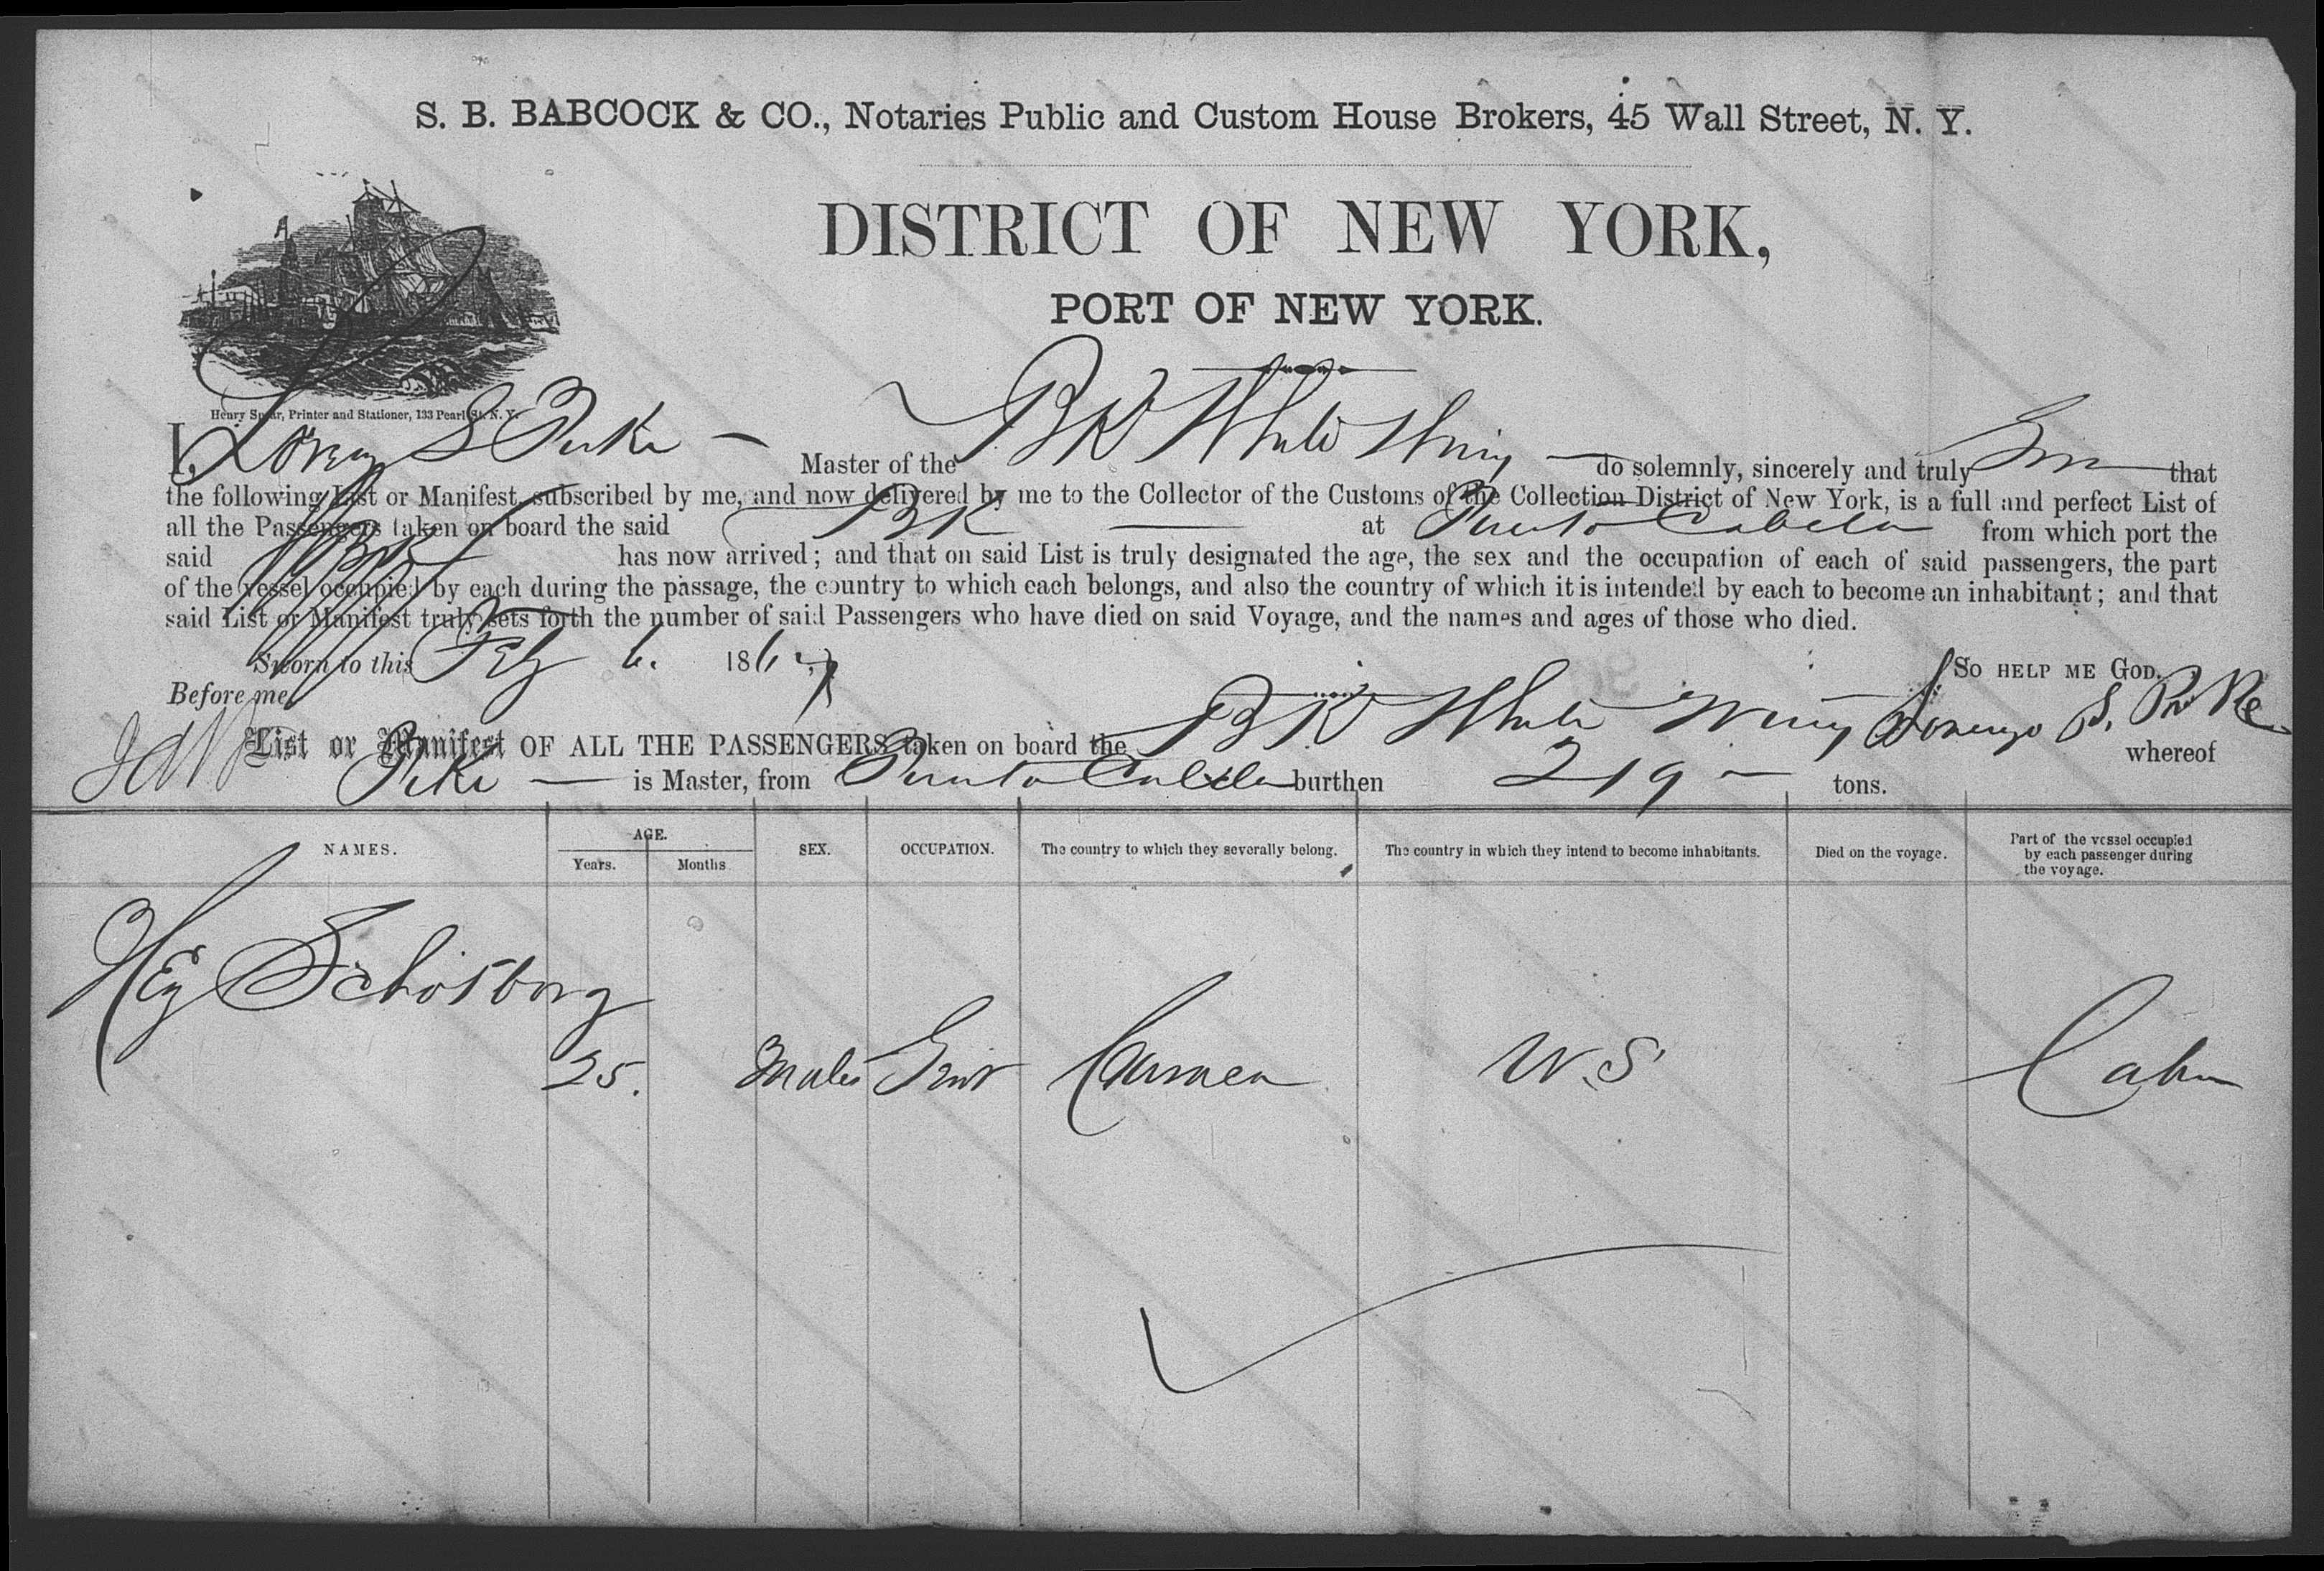 S. B. BABCOCK & CO., Notaries Public and Custom House Brokers, 45 Wall Street, N. Y.
DISTRICT OF NEW YORK,
PORT OF NEW YORK.
Henry Spear, Printer and Stationer, 133 Pearl St. N. Y.
I, S Pike — Master of the BK White Wing — do solemnly, sincerely and truly that
the following List or Manifest, subscribed by me, and now delivered by me to the Collector of the Customs of the Collection District of New York, is a full and perfect List of
all the Passengers taken on board the said BK — at Puerto Cabello from which port the
said BK has now arrived; and that on said List is truly designated the age, the sex and the occupation of each of said passengers, the part
of the vessel occupied by each during the passage, the country to which each belongs, and also the country of which it is intended by each to become an inhabitant; and that
said List or Manifest truly sets forth the number of said Passengers who have died on said Voyage, and the names and ages of those who died.
Sworn to this Feby 6. 186 SO HELP ME GOD.
Before me, Lorenzo S. Pike
List or Manifest OF ALL THE PASSENGERS taken on board the BK White Wing whereof
Pike — is Master, from Puerto Cabello burthen 219 — tons.
NAMES. AGE. SEX. OCCUPATION. The country to which they severally belong. The country in which they intend to become inhabitants. Died on the voyage. Part of the vessel occupied by each passenger during the voyage.
Years. Months
Hy
25. Male Gent U.S Cabin